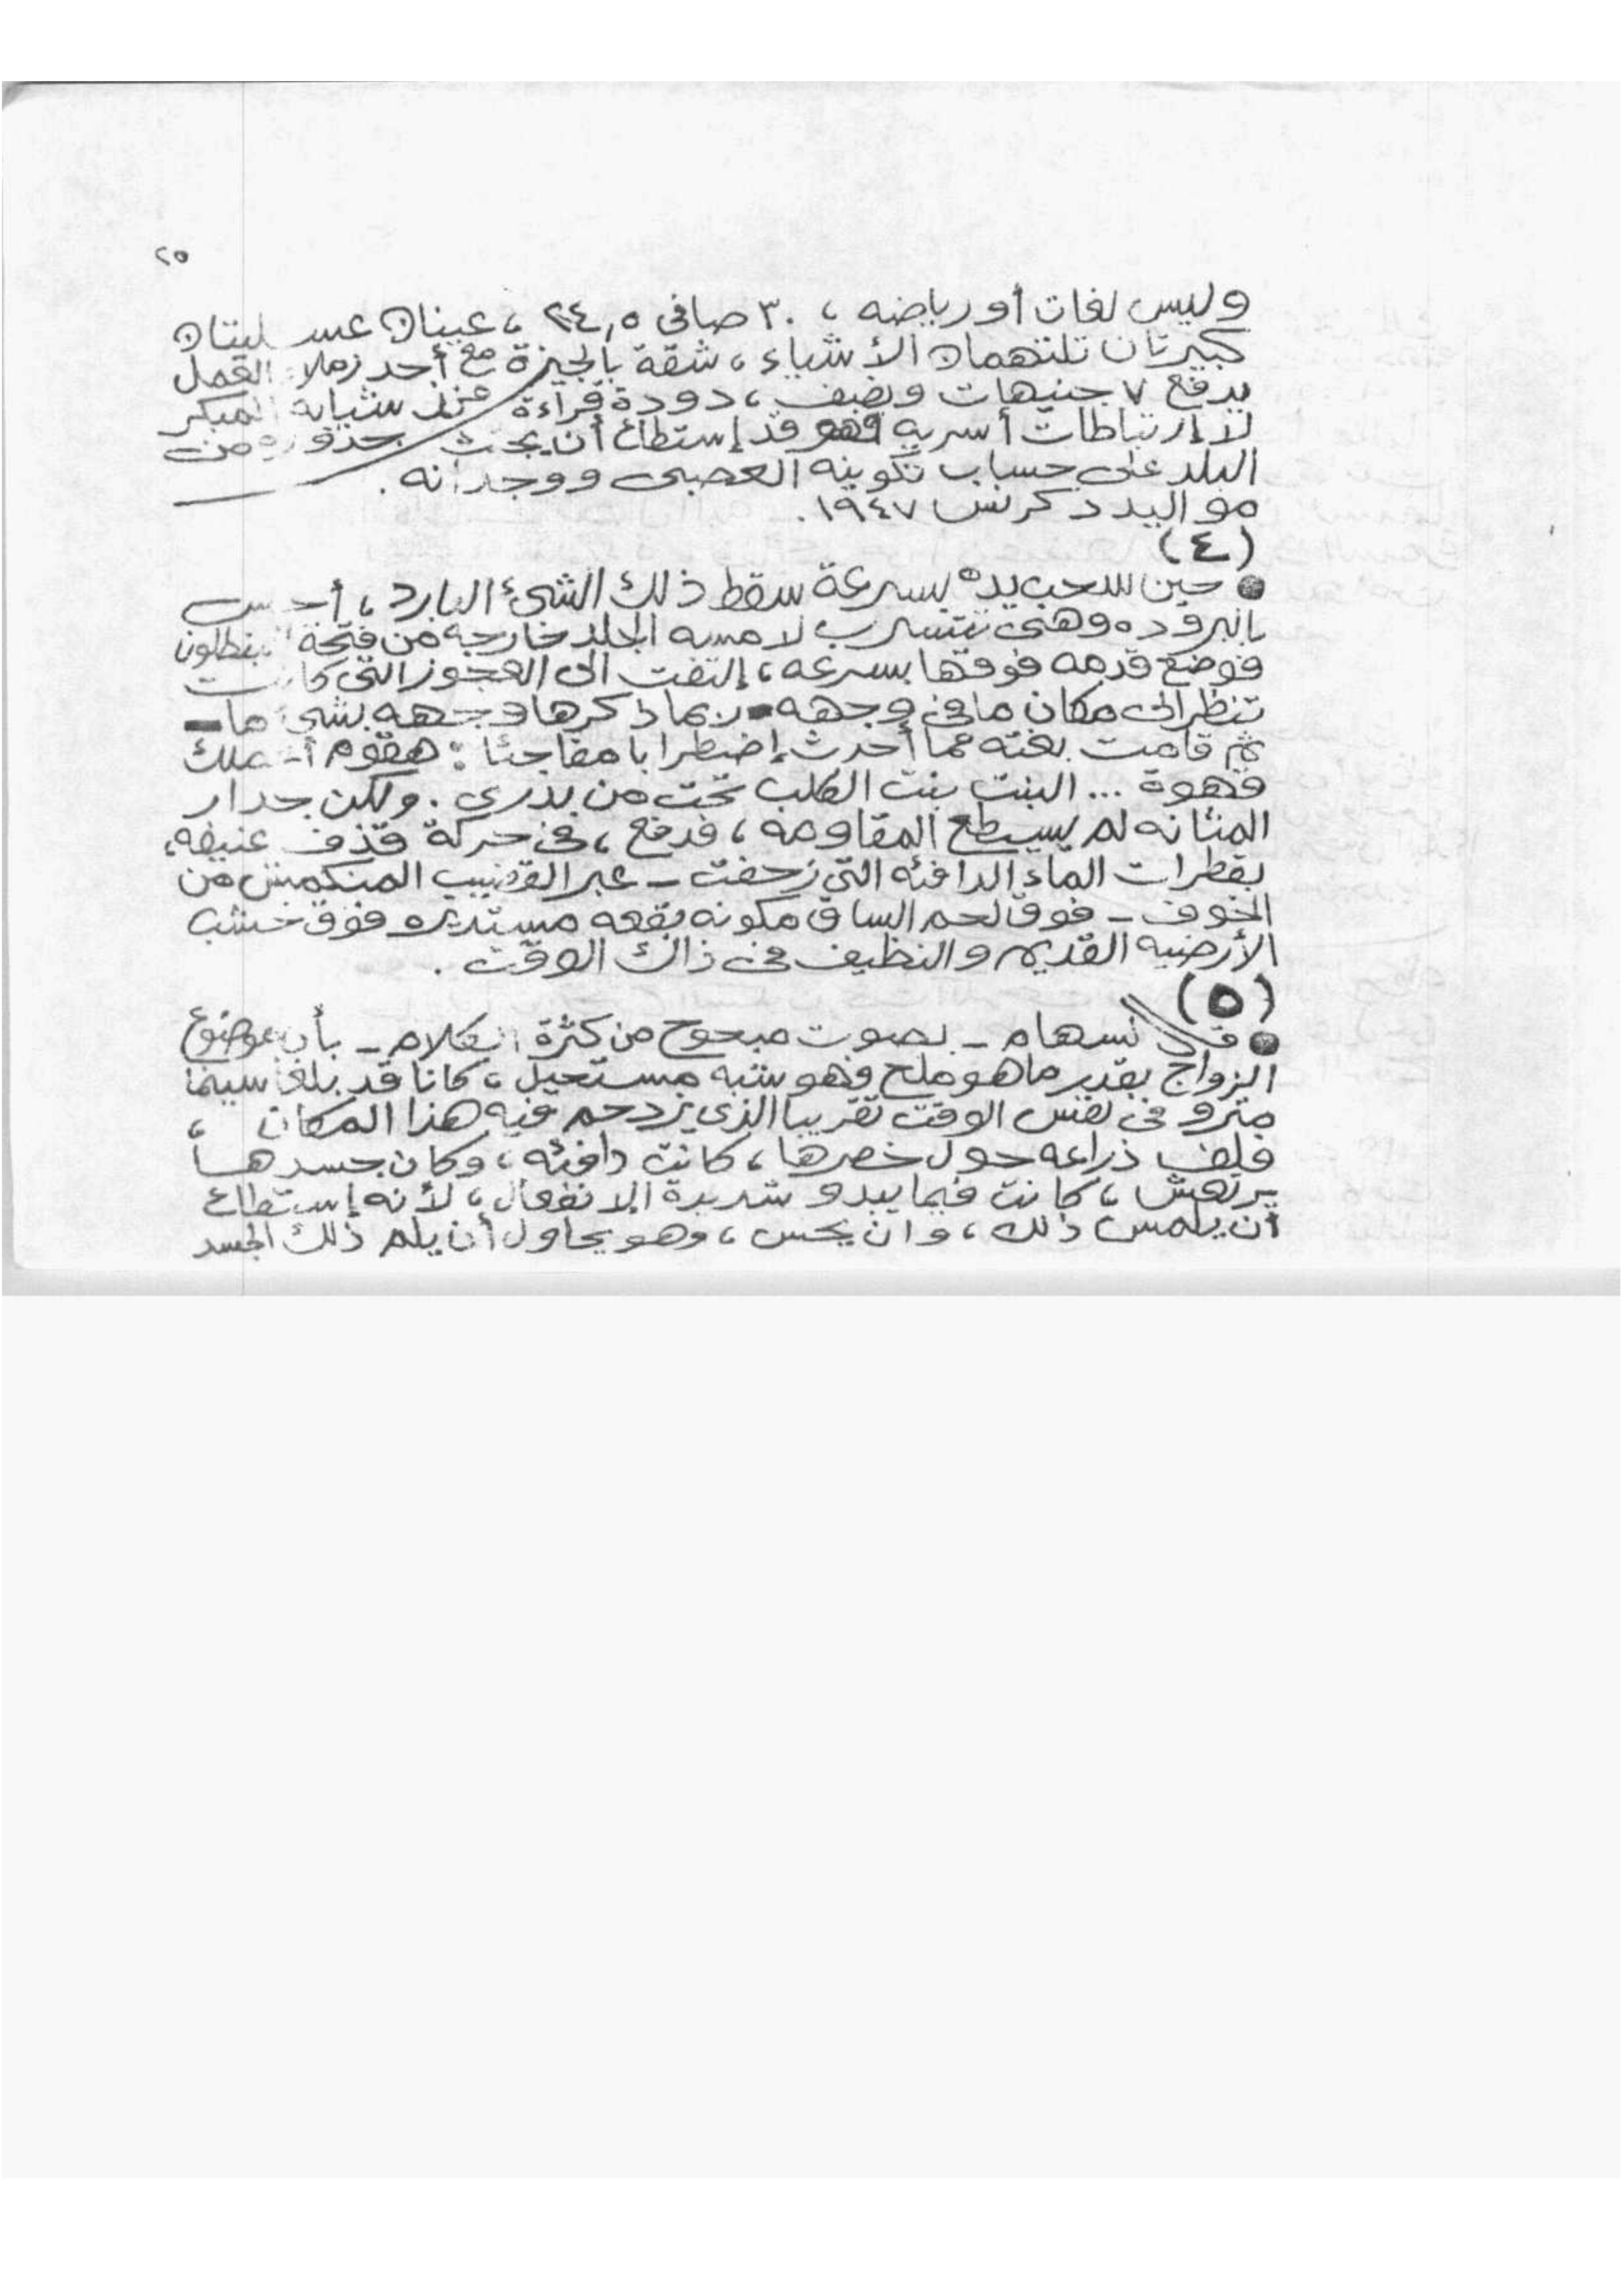 ٢٥
وليس لغات أو رياضه ، ٣٠ صافى ٢٤,٥ ، عيناك عسليتان
كبيرتان تلتهمان الأشياء ، شقة بالجيزة مع أحد زملاء العمل
يدفع ٧ جنيهات ونصف ، دودة قراءة منذ شبابه المبكر
لا إرتباطات أسريه فهو قد إستطاع أن يجتث جذوره من
البلد على حساب تكوينه العصبى ووجدانه .
مواليد دكرنس ١٩٤٧ .
(٤)
● حين سحب يده بسرعة سقط ذلك الشئ البارد ، أحس
بالبروده وهى تتسرب لامسه الجلد خارجه من فتحة البنطلون
فوضع قدمه فوقها بسرعه ، إلتفت الى العجوز التى كانت
تنظر الى مكان ما فى وجهه - ربما ذكرها وجهه بشئ ما -
ثم قامت بغته مما أحدث إضطرابا مفاجئا : هقوم أعملك
قهوة ... البنت بنت الكلب تحت من بدرى . ولكن جدار
المثانه لم يستطع المقاومه ، فدفع ، فى حركة قذف عنيفه ،
بقطرات الماء الدافئه التى زحفت - عبر القضيب المنكمش من
الخوف - فوق لحم الساق مكونه بقعه مستديره فوق خشب
الأرضيه القديم والنظيف فى ذاك الوقت .
(٥)
● قال نسهام - بصوت مبحوح من كثرة الكلام - بأن موضوع
الزواج بقدر ما هو ملح فهو شبه مستحيل ، كانا قد بلغا سينما
مترو فى نفس الوقت تقريبا الذى يزدحم فيه هذا المكان ،
فلف ذراعه حول خصرها ، كانت دافئه ، وكان جسدها
يرتعش ، كانت فيما يبدو شديدة الإنفعال ، لأنه إستطاع
أن يلمس ذلك ، وان يحس ، وهو يحاول أن يلم ذلك الجسد